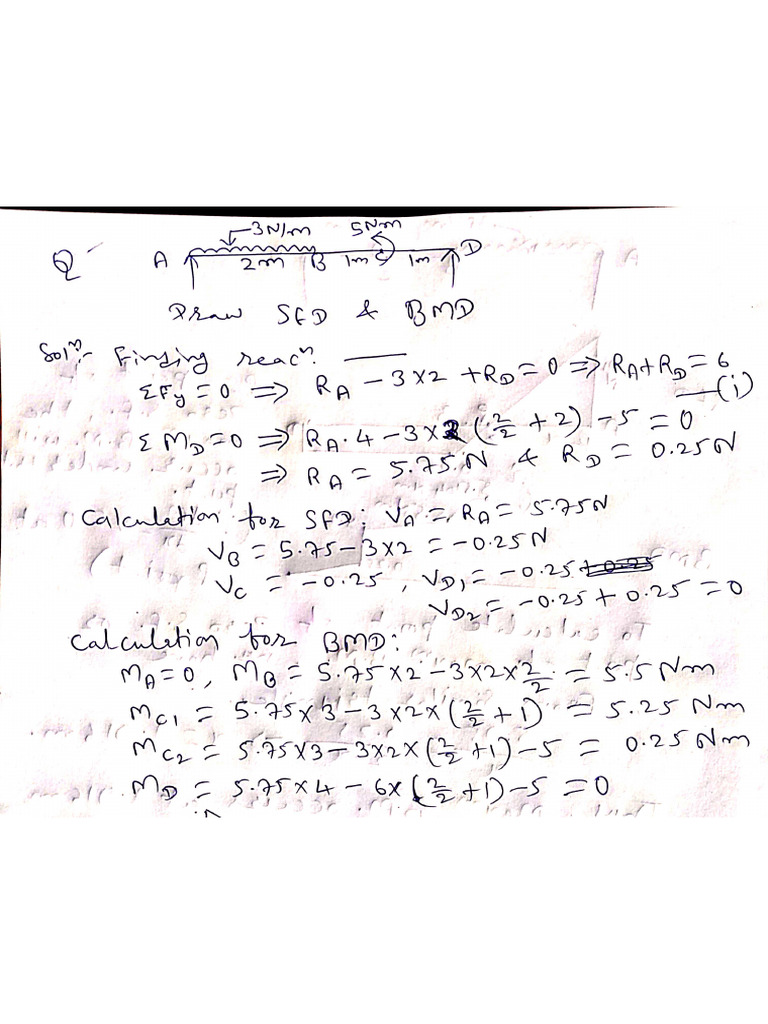 3N/m 5Nm
Q A 2m B 1m C 1m D
Draw SFD & BMD
Solⁿ:- Finding reacⁿ.
ΣFy = 0 ⇒ RA - 3×2 + RD = 0 ⇒ RA + RD = 6 —(i)
ΣMD = 0 ⇒ RA·4 - 3×2 (2/2 + 2) - 5 = 0
⇒ RA = 5.75 N & RD = 0.25N
Calculation for SFD: VA = RA = 5.75N
VB = 5.75 - 3×2 = -0.25N
VC = -0.25, VD1 = -0.25
VD2 = -0.25 + 0.25 = 0
Calculation for BMD:
MA = 0, MB = 5.75×2 - 3×2×2/2 = 5.5 Nm
MC1 = 5.75×3 - 3×2×(2/2 + 1) = 5.25 Nm
MC2 = 5.75×3 - 3×2×(2/2 + 1) - 5 = 0.25 Nm
MD = 5.75×4 - 6×(2/2 + 1) - 5 = 0